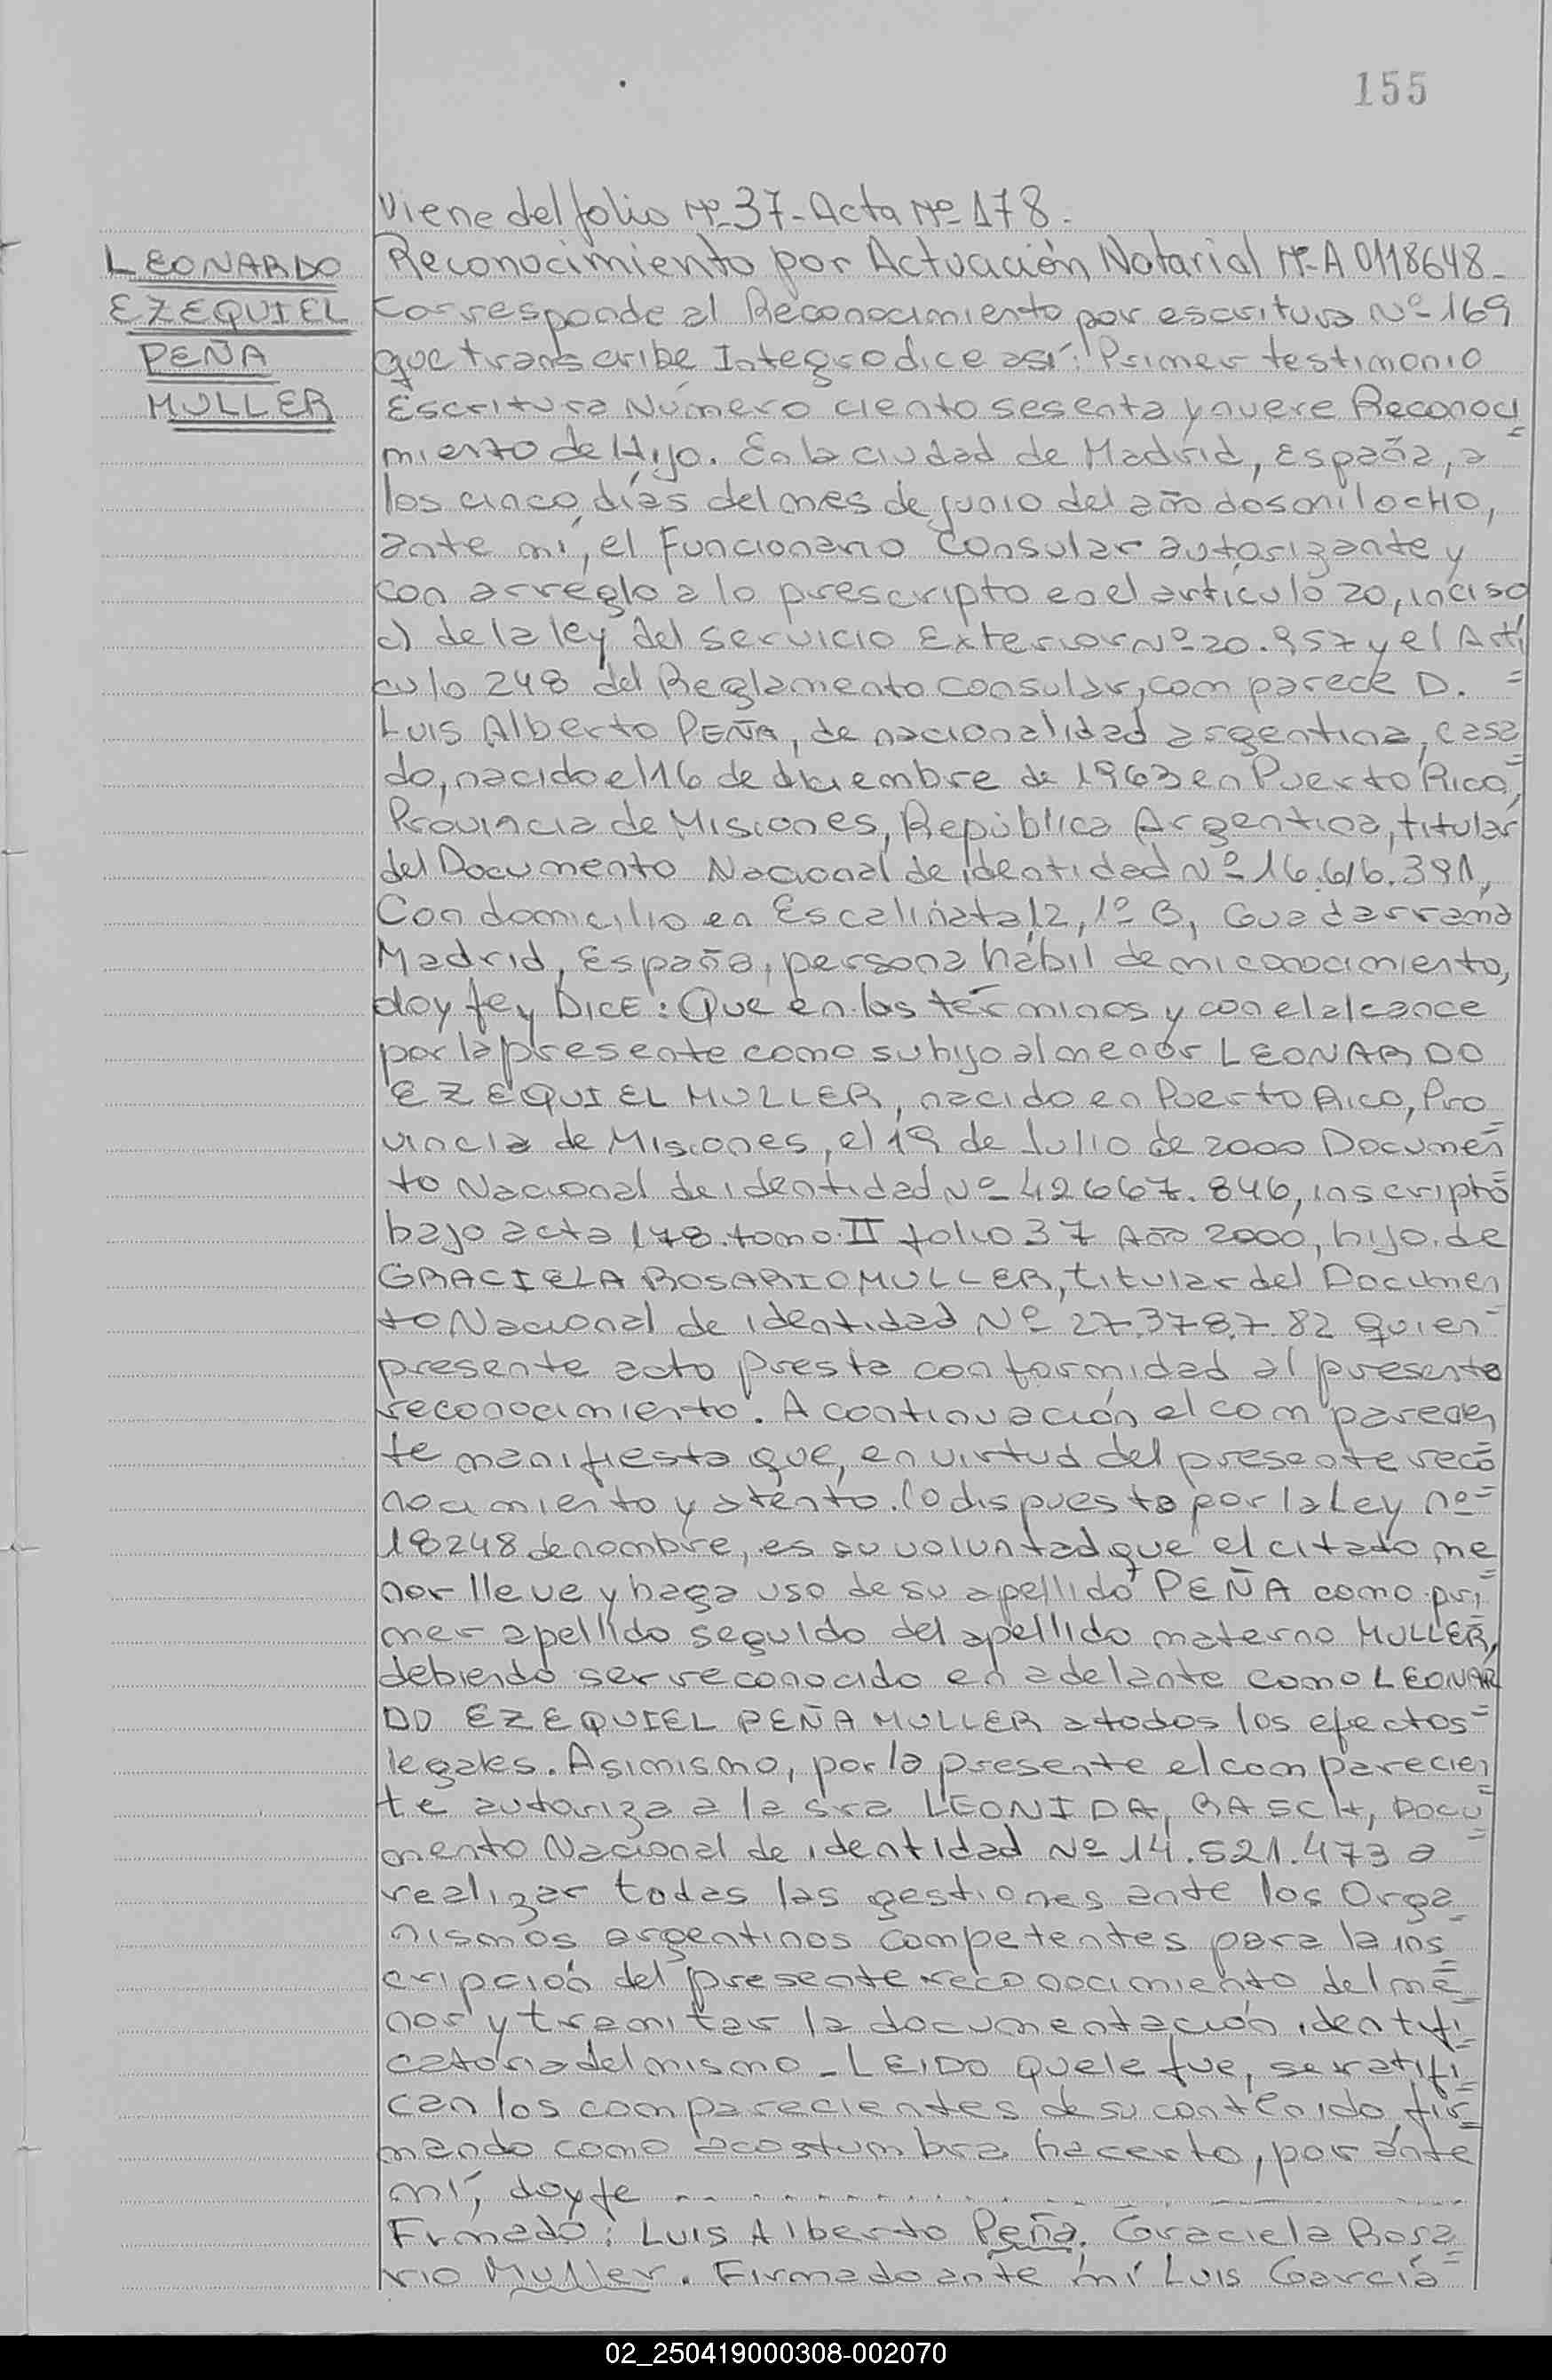 155
Viene del folio Nº 37 - Acta Nº 178.
LEONARDO
EZEQUIEL
PEÑA
MULLER
Reconocimiento por Actuación Notarial Nº A 0118648 -
Corresponde al Reconocimiento por escritura Nº 169
que transcribe Integro dice así: Primer testimonio
Escritura Número ciento sesenta y nueve Reconoci
miento de Hijo. En la ciudad de Madrid, España, a
los cinco, días del mes de junio del año dos mil ocho,
ante mí, el Funcionario Consular autorizante y
con arreglo a lo prescripto en el artículo 20, inciso
c) de la ley del Servicio Exterior Nº 20.957 y el Artí
culo 248 del Reglamento Consular, comparece D. =
Luis Alberto PEÑA, de nacionalidad argentina, casa
do, nacido el 16 de diciembre de 1963 en Puerto Rico,
Provincia de Misiones, República Argentina, titular
del Documento Nacional de identidad Nº 16.616.391,
Con domicilio en Escalinata 12, 1º B, Guadarrama
Madrid, España, persona hábil de mi conocimiento,
doy fe y DICE: Que en los términos y con el alcance
por la presente como su hijo al menor LEONARDO
EZEQUIEL MULLER, nacido en Puerto Rico, Pro
vincia de Misiones, el 19 de Julio de 2000 Documen
to Nacional de identidad Nº 42667.846, inscripto
bajo acta 178 tomo II folio 37 Año 2000, hijo de
GRACIELA ROSARIO MULLER, titular del Documen
to Nacional de identidad Nº 27.378.7.82 quien
presente acto presta conformidad al presente
reconocimiento. A continuación el comparecen
te manifiesta que, en virtud del presente reco
nocimiento y atento lo dispuesto por la Ley nº =
18248 de nombre, es su voluntad que el citado me
nor lleve y haga uso de su apellido PEÑA como pri
mer apellido seguido del apellido materno MULLER,
debiendo ser reconocido en adelante como LEONAR
DO EZEQUIEL PEÑA MULLER a todos los efectos =
legales. Asimismo, por la presente el comparecien
te autoriza a la sra LEONIDA, RASCH, Docu
mento Nacional de identidad Nº 14.521.473 a =
realizar todas las gestiones ante los Orga
nismos argentinos competentes para la ins
cripción del presente reconocimiento del me
nor y tramitar la documentación identifi
catoria del mismo - LEIDO que le fue, se ratifi
can los comparecientes de su contenido, fir
mando como acostumbra hacerlo, por ante
mí, doy fe ..............
Firmado: Luis Alberto Peña. Graciela Rosa
rio Muller. Firmado ante mí Luis García =
02_250419000308-002070